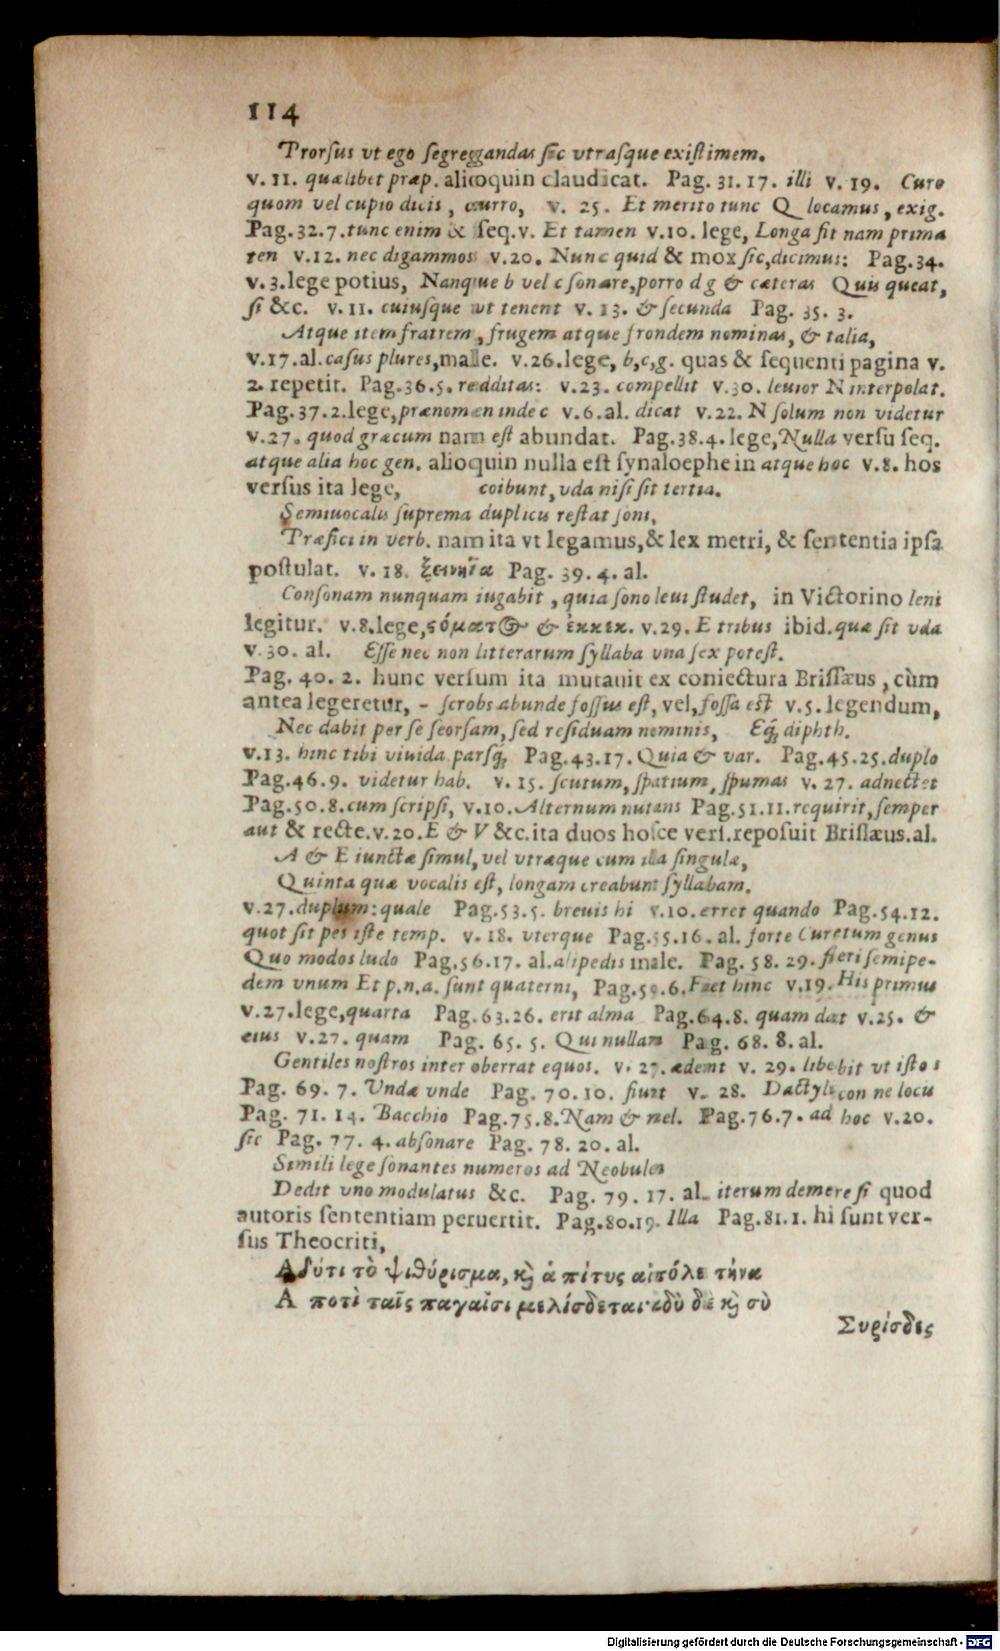 114
Prorſus vt ego ſegreggandas ſic vtraſque existimem.
v. 11. quælibet præp. alioquin claudicat. Pag. 31. 17. illi v. 19. Curo
quom vel cupio dicis, curro, v. 25. Et merito tunc Q locamus, exig.
Pag. 32. 7. tunc enim & ſeq. v. Et tamen v. 10. lege, Longa ſit nam prima
ten v. 12. nec digammos v. 20. Nunc quid & mox ſic, dicimus: Pag. 34.
v. 3. lege potius, Nanque b vel c ſonare, porro d g & cæteras Quis queat,
ſi &c. v. 11. cuiuſque vt tenent v. 13. & ſecunda Pag. 35. 3.
Atque item fratrem, frugem atque frondem nominas, & talia,
v. 17. al. caſus plures, malle. v. 26. lege, b, c, g. quas & ſequenti pagina v.
2. repetit. Pag. 36. 5. redditas: v. 23. compellit v. 30. leuior N interpolat.
Pag. 37. 2. lege, prænomen inde c v. 6. al. dicat v. 22. N ſolum non videtur
v. 27. quod græcum nam est abundat. Pag. 38. 4. lege, Nulla verſu ſeq.
atque alia hoc gen. alioquin nulla est ſynaloephe in atque hoc v. 8. hos
verſus ita lege, coibunt, vda niſi ſit tertia.
Semiuocalis ſuprema duplicis restat ſoni,
Præfici in verb. nam ita vt legamus, & lex metri, & ſententia ipſa
poſtulat. v. 18. ξεινηΐα Pag. 39. 4. al.
Conſonam nunquam iugabit, quia ſono leui studet, in Victorino leni
legitur. v. 8. lege, ςόματος & ἐκκεκ. v. 29. E tribus ibid. quæ ſit vda
v. 30. al. Eſſe nec non litterarum ſyllaba vna ſex potest.
Pag. 40. 2. hunc verſum ita mutauit ex coniectura Briſſæus, cùm
antea legeretur, - ſcrobs abunde foſſus est, vel, foſſa est v. 5. legendum,
Nec dabit per ſe ſeorſam, ſed reſiduam neminis, Eq́; diphth.
v. 13. hinc tibi viuida parſq́; Pag. 43. 17. Quia & var. Pag. 45. 25. duplo
Pag. 46. 9. videtur hab. v. 15. ſcutum, ſpatium, ſpumas v. 27. adnectet
Pag. 50. 8. cum ſcripſi, v. 10. Alternum nutans Pag. 51. 11. requirit, ſemper
aut & recte. v. 20. E & V &c. ita duos hoſce verſ. repoſuit Briſſæus. al.
A & E iunctæ ſimul, vel vtræque cum illa ſingulæ,
Quinta quæ vocalis est, longam creabunt ſyllabam.
v. 27. duplum: quale Pag. 53. 5. breuis hi v. 10. erret quando Pag. 54. 12.
quot ſit pes iste temp. v. 18. vterque Pag. 55. 16. al. forte Curetum genus
Quo modos ludo Pag. 56. 17. al. alipedis male. Pag. 58. 29. fieri ſemipe-
dem vnum Et p. n. a. ſunt quaterni, Pag. 59. 6. Fiet hinc v. 19. His primus
v. 27. lege, quarta Pag. 63. 26. erit alma Pag. 64. 8. quam dat v. 25. &
eius v. 27. quam Pag. 65. 5. Qui nullam Pag. 68. 8. al.
Gentiles nostros inter oberrat equos. v. 27. ædemt v. 29. libebit vt istos
Pag. 69. 7. Vndæ vnde Pag. 70. 10. fiunt v. 28. Dactylicon ne locis
Pag. 71. 14. Bacchio Pag. 75. 8. Nam & nel. Pag. 76. 7. ad hoc v. 20.
ſic Pag. 77. 4. abſonare Pag. 78. 20. al.
Simili lege ſonantes numeros ad Neobules
Dedit vno modulatus &c. Pag. 79. 17. al. iterum demere ſi quod
autoris ſententiam peruertit. Pag. 80. 19. Illa Pag. 81. 1. hi ſunt ver-
ſus Theocriti,
Ἁδύτι τὸ ψιθύρισμα, κ̀ ἁ πίτυς αἰπόλε τήνα
Ἁ ποτὶ ταῖς παγαῖσι μελίσδεται· ἁδὺ δὲ κ̀ σὺ
Συρίσδες
Digitalisierung gefördert durch die Deutsche Forschungsgemeinschaft - DFG